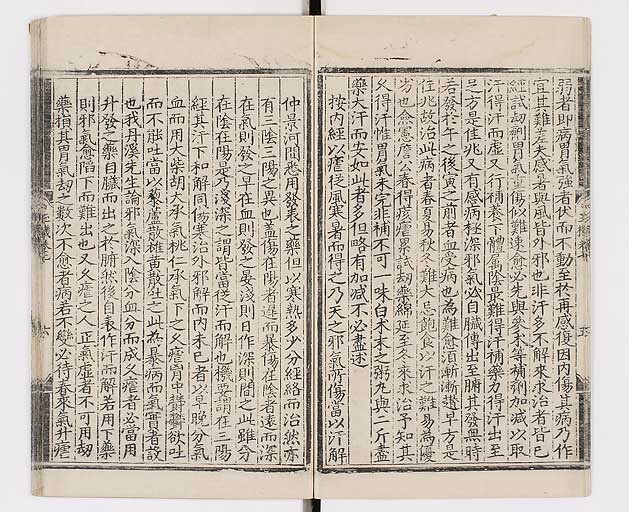 弱者即病胃氣強者伏而不動至於再感復因內傷其病乃作
宜其難差夫感暑與風皆外邪也非汗多不解來求治者皆已
經試劫劑胃氣重傷似難速愈必先與參朮等補劑加減以取
汗得汗而虛又行補養下體屬陰最難得汗補藥力得汗出至
足方是佳兆又有感病極深邪氣必自臟傳出至腑其發無時
若發於午之後寅之前者血受病也為難愈須漸漸趲早方是
佳兆故治此病者春夏易秋冬難大忌飽食以汗之難易為優
劣也僉憲詹公春得痎瘧累試劫藥綿延至冬來求治予知其
久得汗惟胃氣未完非補不可一味白朮末之粥丸與二斤盡
藥大汗而安如此者多但略有加減不必盡述
按內經以瘧從風寒暑而得之乃天之邪氣所傷當以汗解
仲景河間悉用發表之藥但以寒熱多少分經絡而治然亦
有三陰三陽之異也盖傷在陽者淺而暴傷在陰者遠而深
在氣則發之早在血則發之晏淺則日作深則間之此雖分
在陰在陽是乃淺深之謂皆當從汗而解也機要謂在三陽
經其汗下和解同傷寒治外邪解而內未已者以早晚分氣
血而用大柴胡大承氣桃仁承氣下之久瘧胃中欝欝欲吐
而不能吐當以藜蘆散雄黃散吐之此為暴病而氣實者設
也我丹溪先生論邪氣深入陰分血分而成久瘧者必當用
升發之藥自臟而出之於腑然後自表作汗而解若用下藥
則邪氣愈陷下而難出也又久瘧之人正氣虛者不可用劫
藥損其胃氣劫之數次不愈者病若不變必待春來氣升瘧